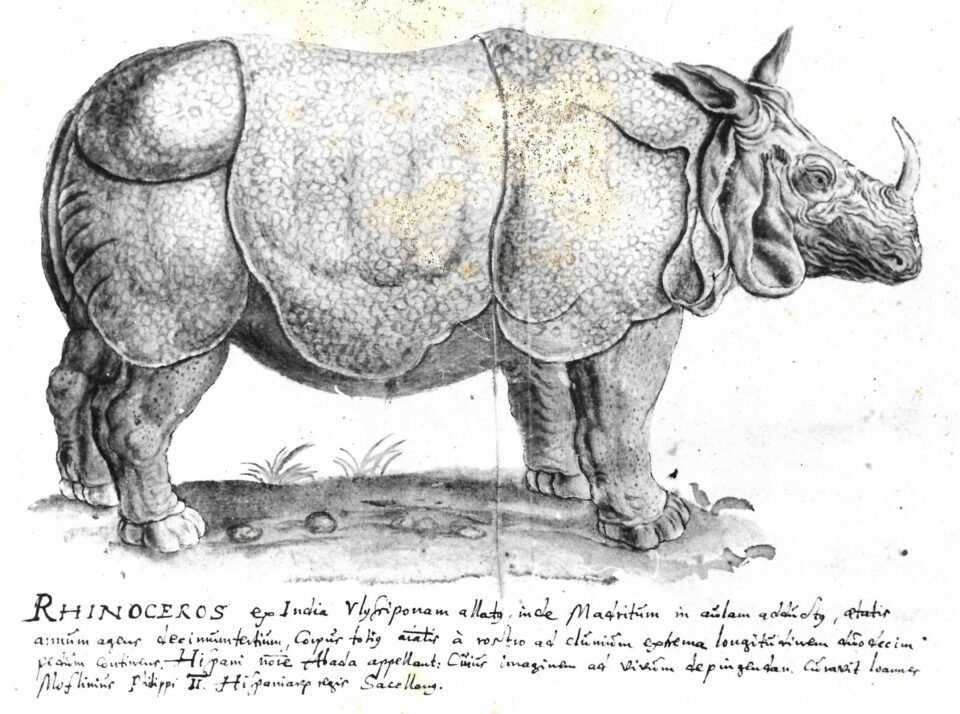 RHINOCEROS ex India Vlysiponam allatꝯ, inde Madritum in aulam adductꝯ, ætatis
annum agens decimumtertium, Corpus à rostro ad clunium extrema longitudinem duodecim
pedum continens. Hispani Abada appellant: Cuius imaginem ad vivum depingendam Curavit Ioannes
Moflinius Philippi II. Hispaniarꝯ regis Sacellanꝯ.